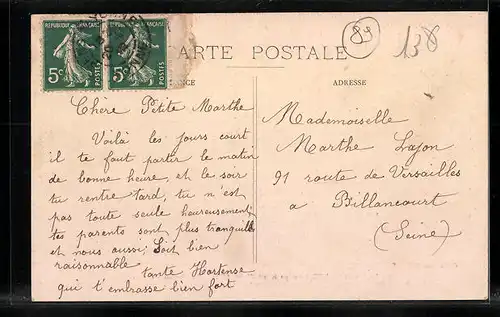 89
138
CARTE POSTALE
ADRESSE
REPUBLIQUE FRANÇAISE
5c POSTES
REPUBLIQUE FRANÇAISE
5c POSTES
Chère Petite Marthe
Voilà les jours court
il te faut partir le matin
de bonne heure, et le soir
tu rentre tard, tu n'est
pas toute seule heureusement
tes parents sont plus tranquille
et nous aussi; Soit bien
raisonnable
tante Hortense
qui t'embrasse bien fort
Mademoiselle
Marthe Lajon
91 route de Versailles
a Billancourt
(Seine)